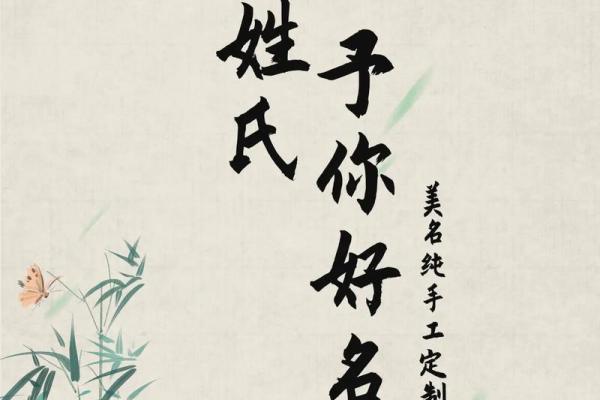 姓氏
予你好名
美名纯手工定制